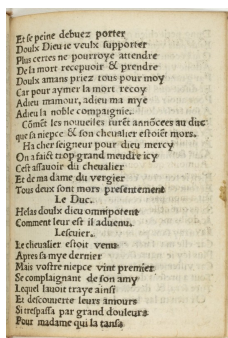 Et se peine debuez porter
Doulx Dieu ie veulx supporter
Plus certes ne pourroye attendre
De la mort recepuoir & prendre
Doulx amans priez tous pour moy
Car pour aymer la mort recoy
Adieu mamour, adieu ma mye
Adieu la noble compaignie.
Cõmēt les nouuelles furēt annõcees au duc
que sa niepce & son cheualier estoiēt mors.
Ha cher seigneur pour dieu mercy
On a faict trop grand meudre icy
Cest assauoir du cheualier
Et de ma dame du vergier
Tous deux sont mors presentement
Le Duc.
Helas doulx dieu omnipotent
Comment leur est il aduenu.
Lescuier.
Le cheualier estoit venu
Apres sa mye dernier
Mais vostre niepce vint premier
Se complaignant de son amy
Lequel lauoit traye ainsi
Et descouuerte leurs amours
Si trespassa par grand douleurs
Pour madame qui la tansa